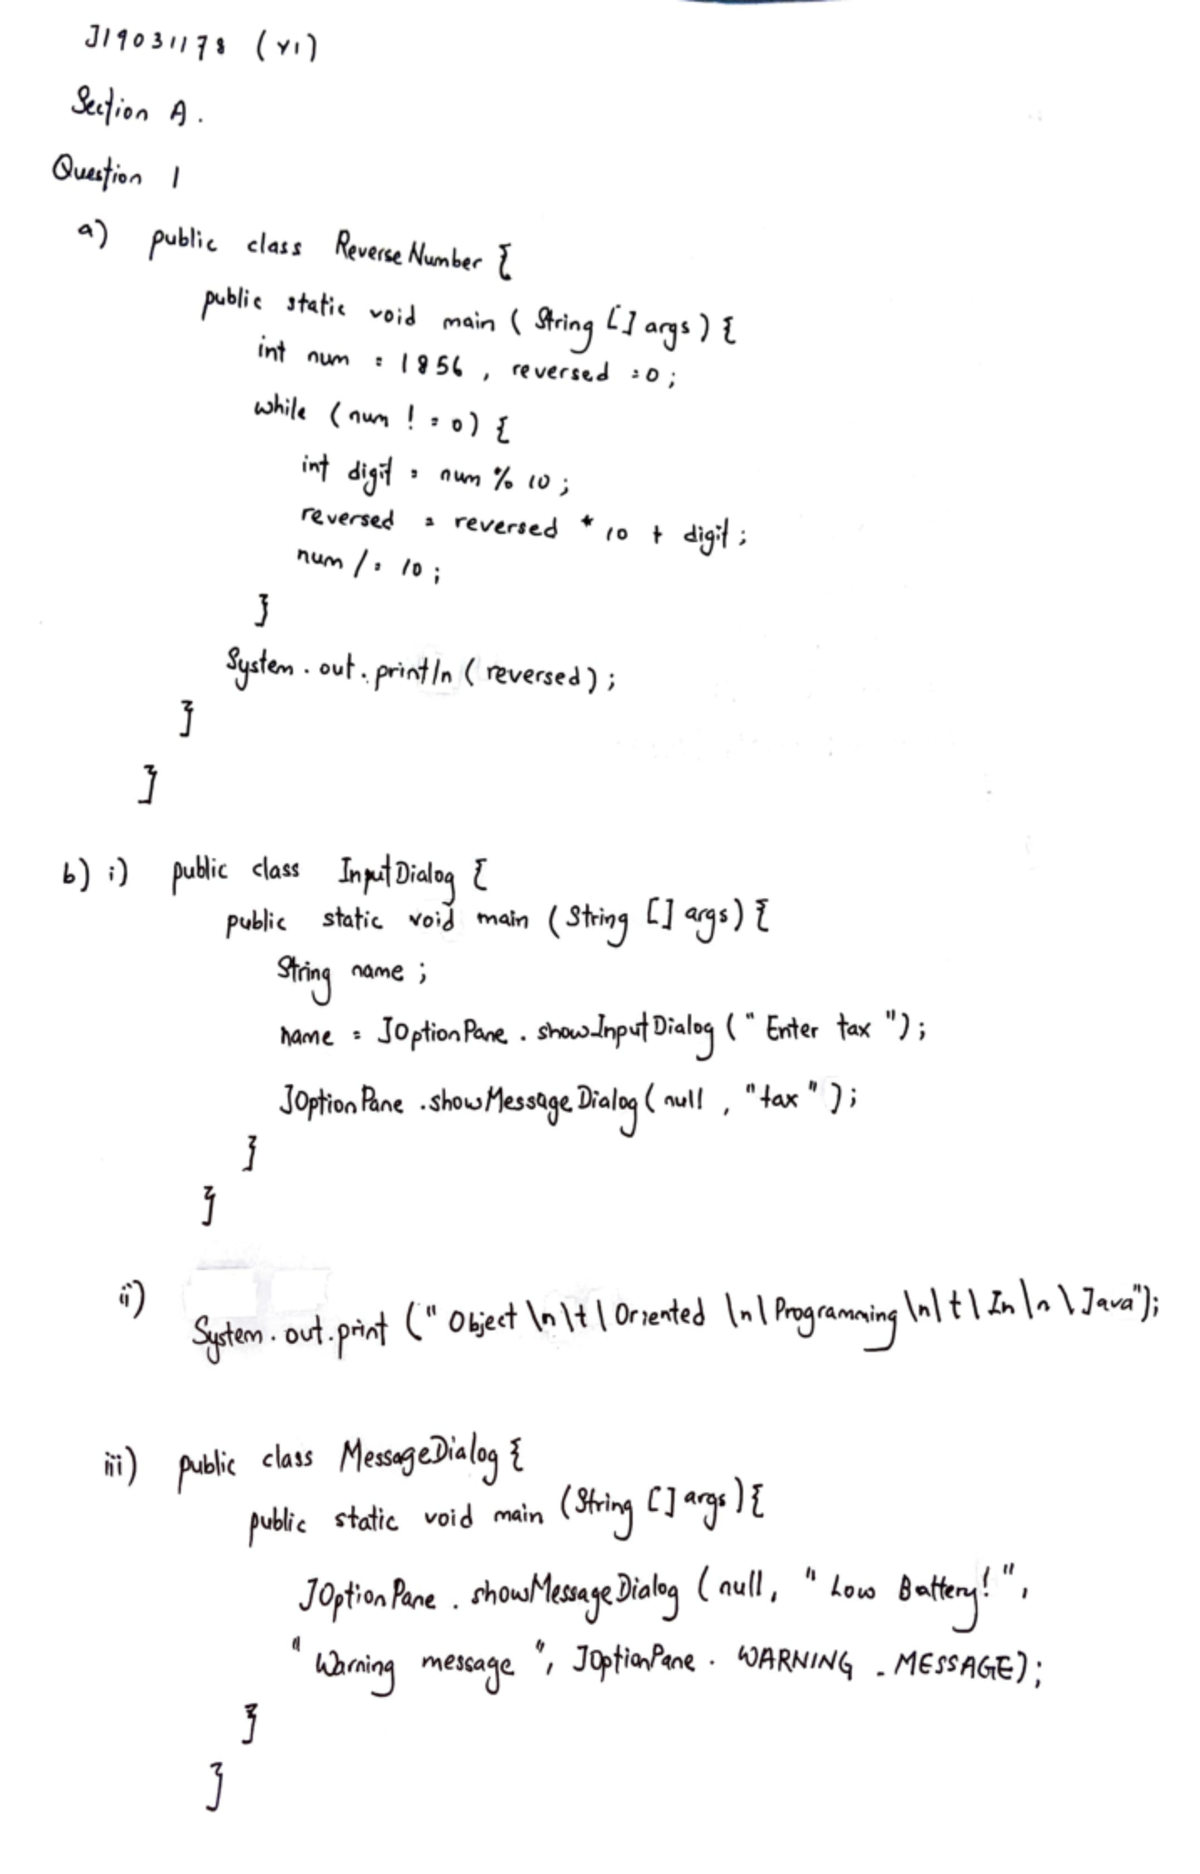 J19031178 (Y1)
Section A.
Question 1
a) public class ReverseNumber {
public static void main (String [] args) {
int num = 1856, reversed = 0;
while (num != 0) {
int digit = num % 10;
reversed = reversed * 10 + digit;
num /= 10;
}
System.out.println (reversed);
}
}
b) i) public class InputDialog {
public static void main (String [] args) {
String name;
name = JOptionPane.showInputDialog ("Enter tax");
JOptionPane.showMessageDialog (null, "tax");
}
}
ii) System.out.print ("Object \n \t \ Oriented \n \ Programming \n \ t \ In \n \ Java");
iii) public class MessageDialog {
public static void main (String [] args) {
JOptionPane.showMessageDialog (null, "Low Battery!",
"Warning message", JOptionPane.WARNING_MESSAGE);
}
}